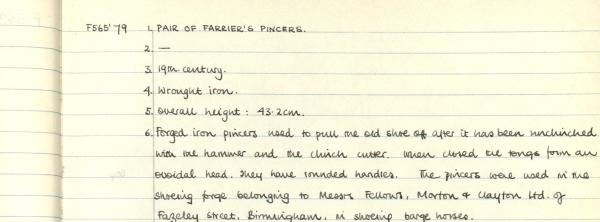 F565'79 1. PAIR OF FARRIER'S PINCERS.
2. —
3. 19th century.
4. Wrought iron.
5. Overall height: 43.2cm.
6. Forged iron pincers used to pull the old shoe off after it has been unclinched
with the hammer and the clinch cutter. When closed the tongs form an
ovoidal head. They have rounded handles. The pincers were used in the
shoeing forge belonging to Messrs Fellows, Morton & Clayton Ltd. of
Fazeley Street, Birmingham, in shoeing barge horses.